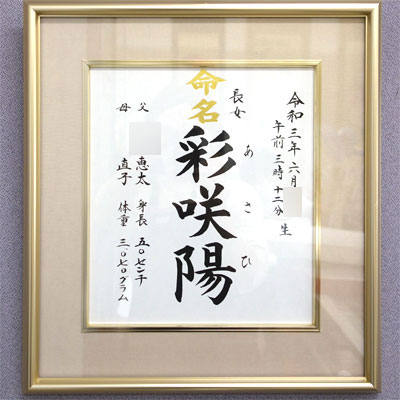 令和三年六月
午前三時十二分生
命名
長女
彩咲陽
あさひ
父 恵太
母 直子
身長 五〇センチ
体重 三、〇七〇グラム